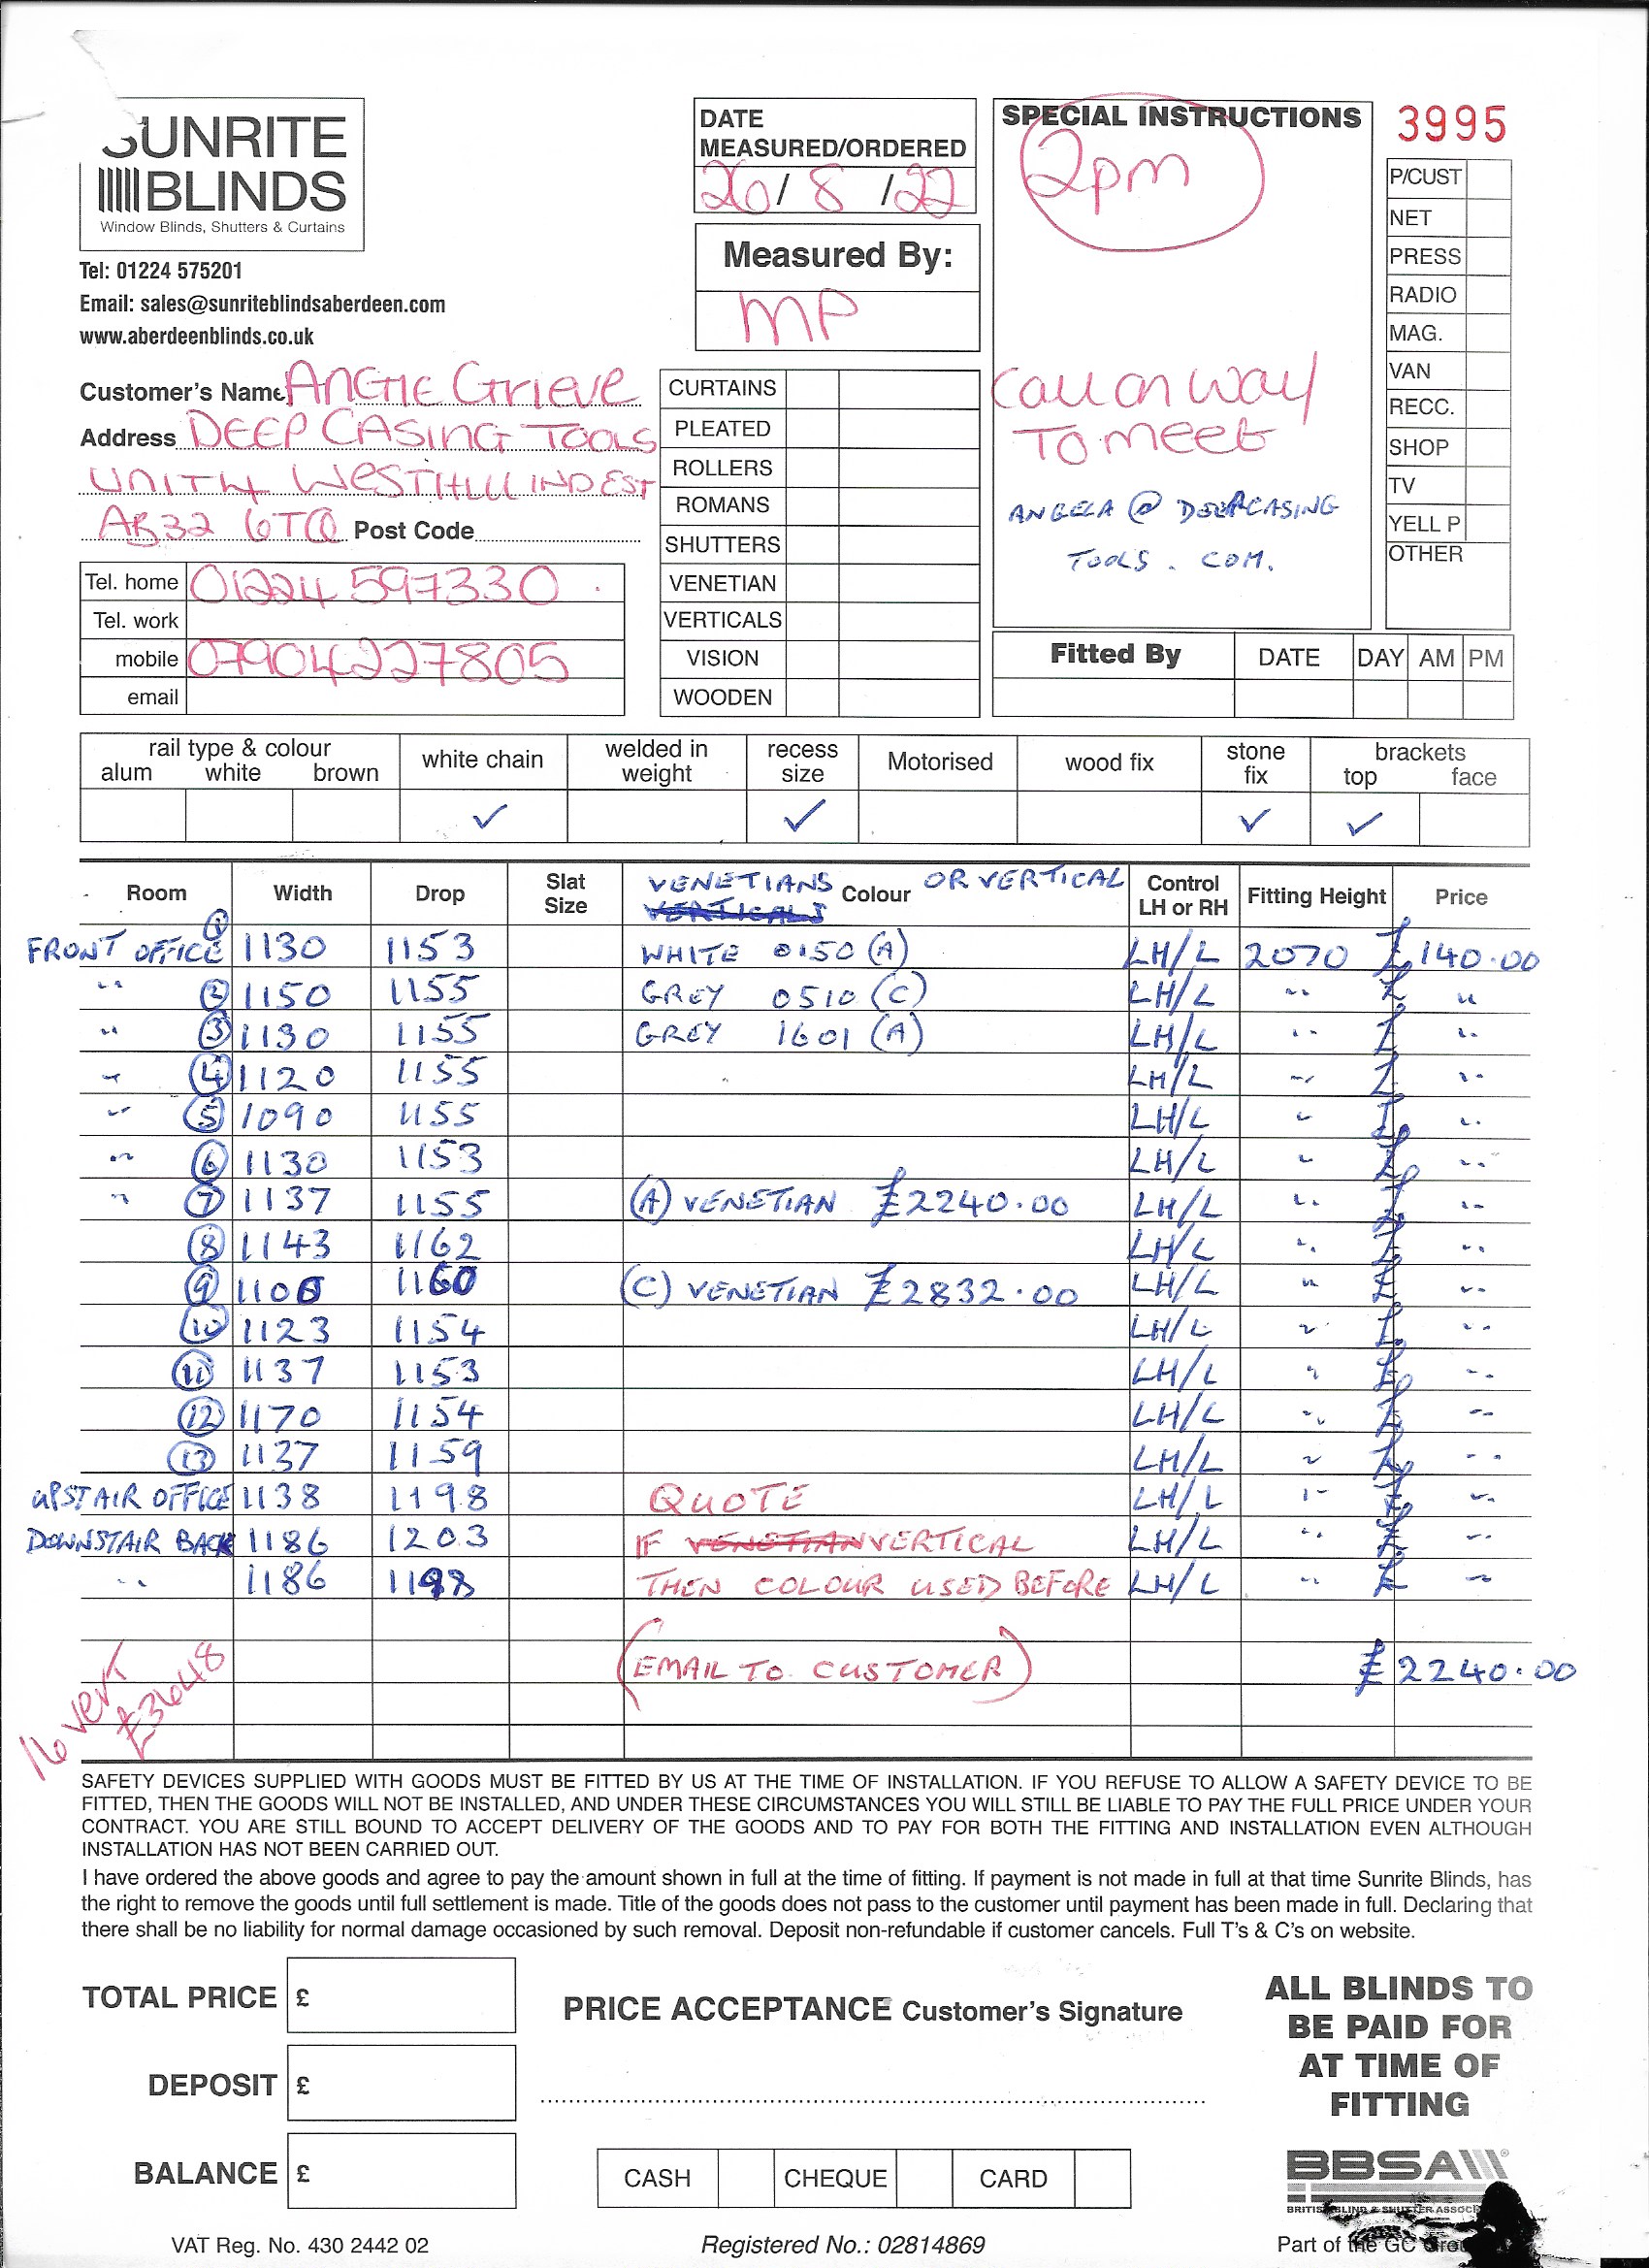 SUNRITE
BLINDS
Window Blinds, Shutters & Curtains
Tel: 01224 575201
Email: sales@sunriteblindsaberdeen.com
www.aberdeenblinds.co.uk
DATE
MEASURED/ORDERED
26/ 8 /22
Measured By:
MP
SPECIAL INSTRUCTIONS
2pm
Call on way
To meet
ANGELA @ DEEPCASING
TOOLS . COM.
3995
P/CUST
NET
PRESS
RADIO
MAG.
VAN
RECC.
SHOP
TV
YELL P
OTHER
Customer's Name ANGIE Grieve
Address DEEP CASING TOOLS
UNIT 4 WESTHILL IND EST
AB32 6TQ Post Code
Tel. home 01224 597330
Tel. work
mobile 07904227805
email
CURTAINS
PLEATED
ROLLERS
ROMANS
SHUTTERS
VENETIAN
VERTICALS
VISION
WOODEN
Fitted By DATE DAY AM PM
rail type & colour
alum white brown
white chain ✓
welded in weight
recess size ✓
Motorised
wood fix
stone fix ✓
brackets
top ✓ face
Room Width Drop Slat Size VENETIANS VERTICALS Colour OR VERTICAL Control LH or RH Fitting Height Price
FRONT OFFICE 1 1130 1153 WHITE 0150 (A) LH/L 2070 £140.00
" 2 1150 1155 GREY 0510 (C) LH/L " £ "
" 3 1130 1155 GREY 1601 (A) LH/L " £ "
" 4 1120 1155 LH/L " £ "
" 5 1090 1155 LH/L " £ "
" 6 1130 1153 LH/L " £ "
" 7 1137 1155 (A) VENETIAN £2240.00 LH/L " £ "
8 1143 1162 LH/L " £ "
9 1160 (C) VENETIAN £2832.00 LH/L " £ "
10 1123 1154 LH/L " £ "
11 1137 1153 LH/L " £ "
12 1170 1154 LH/L " £ "
13 1137 1159 LH/L " £ "
UPSTAIR OFFICE 1138 1198 QUOTE LH/L " £ "
DOWNSTAIR BACK 1186 1203 IF VENETIAN VERTICAL LH/L " £ "
" 1186 1198 THEN COLOUR USED BEFORE LH/L " £ "
(EMAIL TO CUSTOMER) £2240.00
16 vert
£3648
SAFETY DEVICES SUPPLIED WITH GOODS MUST BE FITTED BY US AT THE TIME OF INSTALLATION. IF YOU REFUSE TO ALLOW A SAFETY DEVICE TO BE
FITTED, THEN THE GOODS WILL NOT BE INSTALLED, AND UNDER THESE CIRCUMSTANCES YOU WILL STILL BE LIABLE TO PAY THE FULL PRICE UNDER YOUR
CONTRACT. YOU ARE STILL BOUND TO ACCEPT DELIVERY OF THE GOODS AND TO PAY FOR BOTH THE FITTING AND INSTALLATION EVEN ALTHOUGH
INSTALLATION HAS NOT BEEN CARRIED OUT.
I have ordered the above goods and agree to pay the amount shown in full at the time of fitting. If payment is not made in full at that time Sunrite Blinds, has
the right to remove the goods until full settlement is made. Title of the goods does not pass to the customer until payment has been made in full. Declaring that
there shall be no liability for normal damage occasioned by such removal. Deposit non-refundable if customer cancels. Full T's & C's on website.
TOTAL PRICE £
DEPOSIT £
BALANCE £
PRICE ACCEPTANCE Customer's Signature
CASH CHEQUE CARD
ALL BLINDS TO
BE PAID FOR
AT TIME OF
FITTING
BBSA
BRITISH BLIND & SHUTTER
VAT Reg. No. 430 2442 02
Registered No.: 02814869
Part of the GC